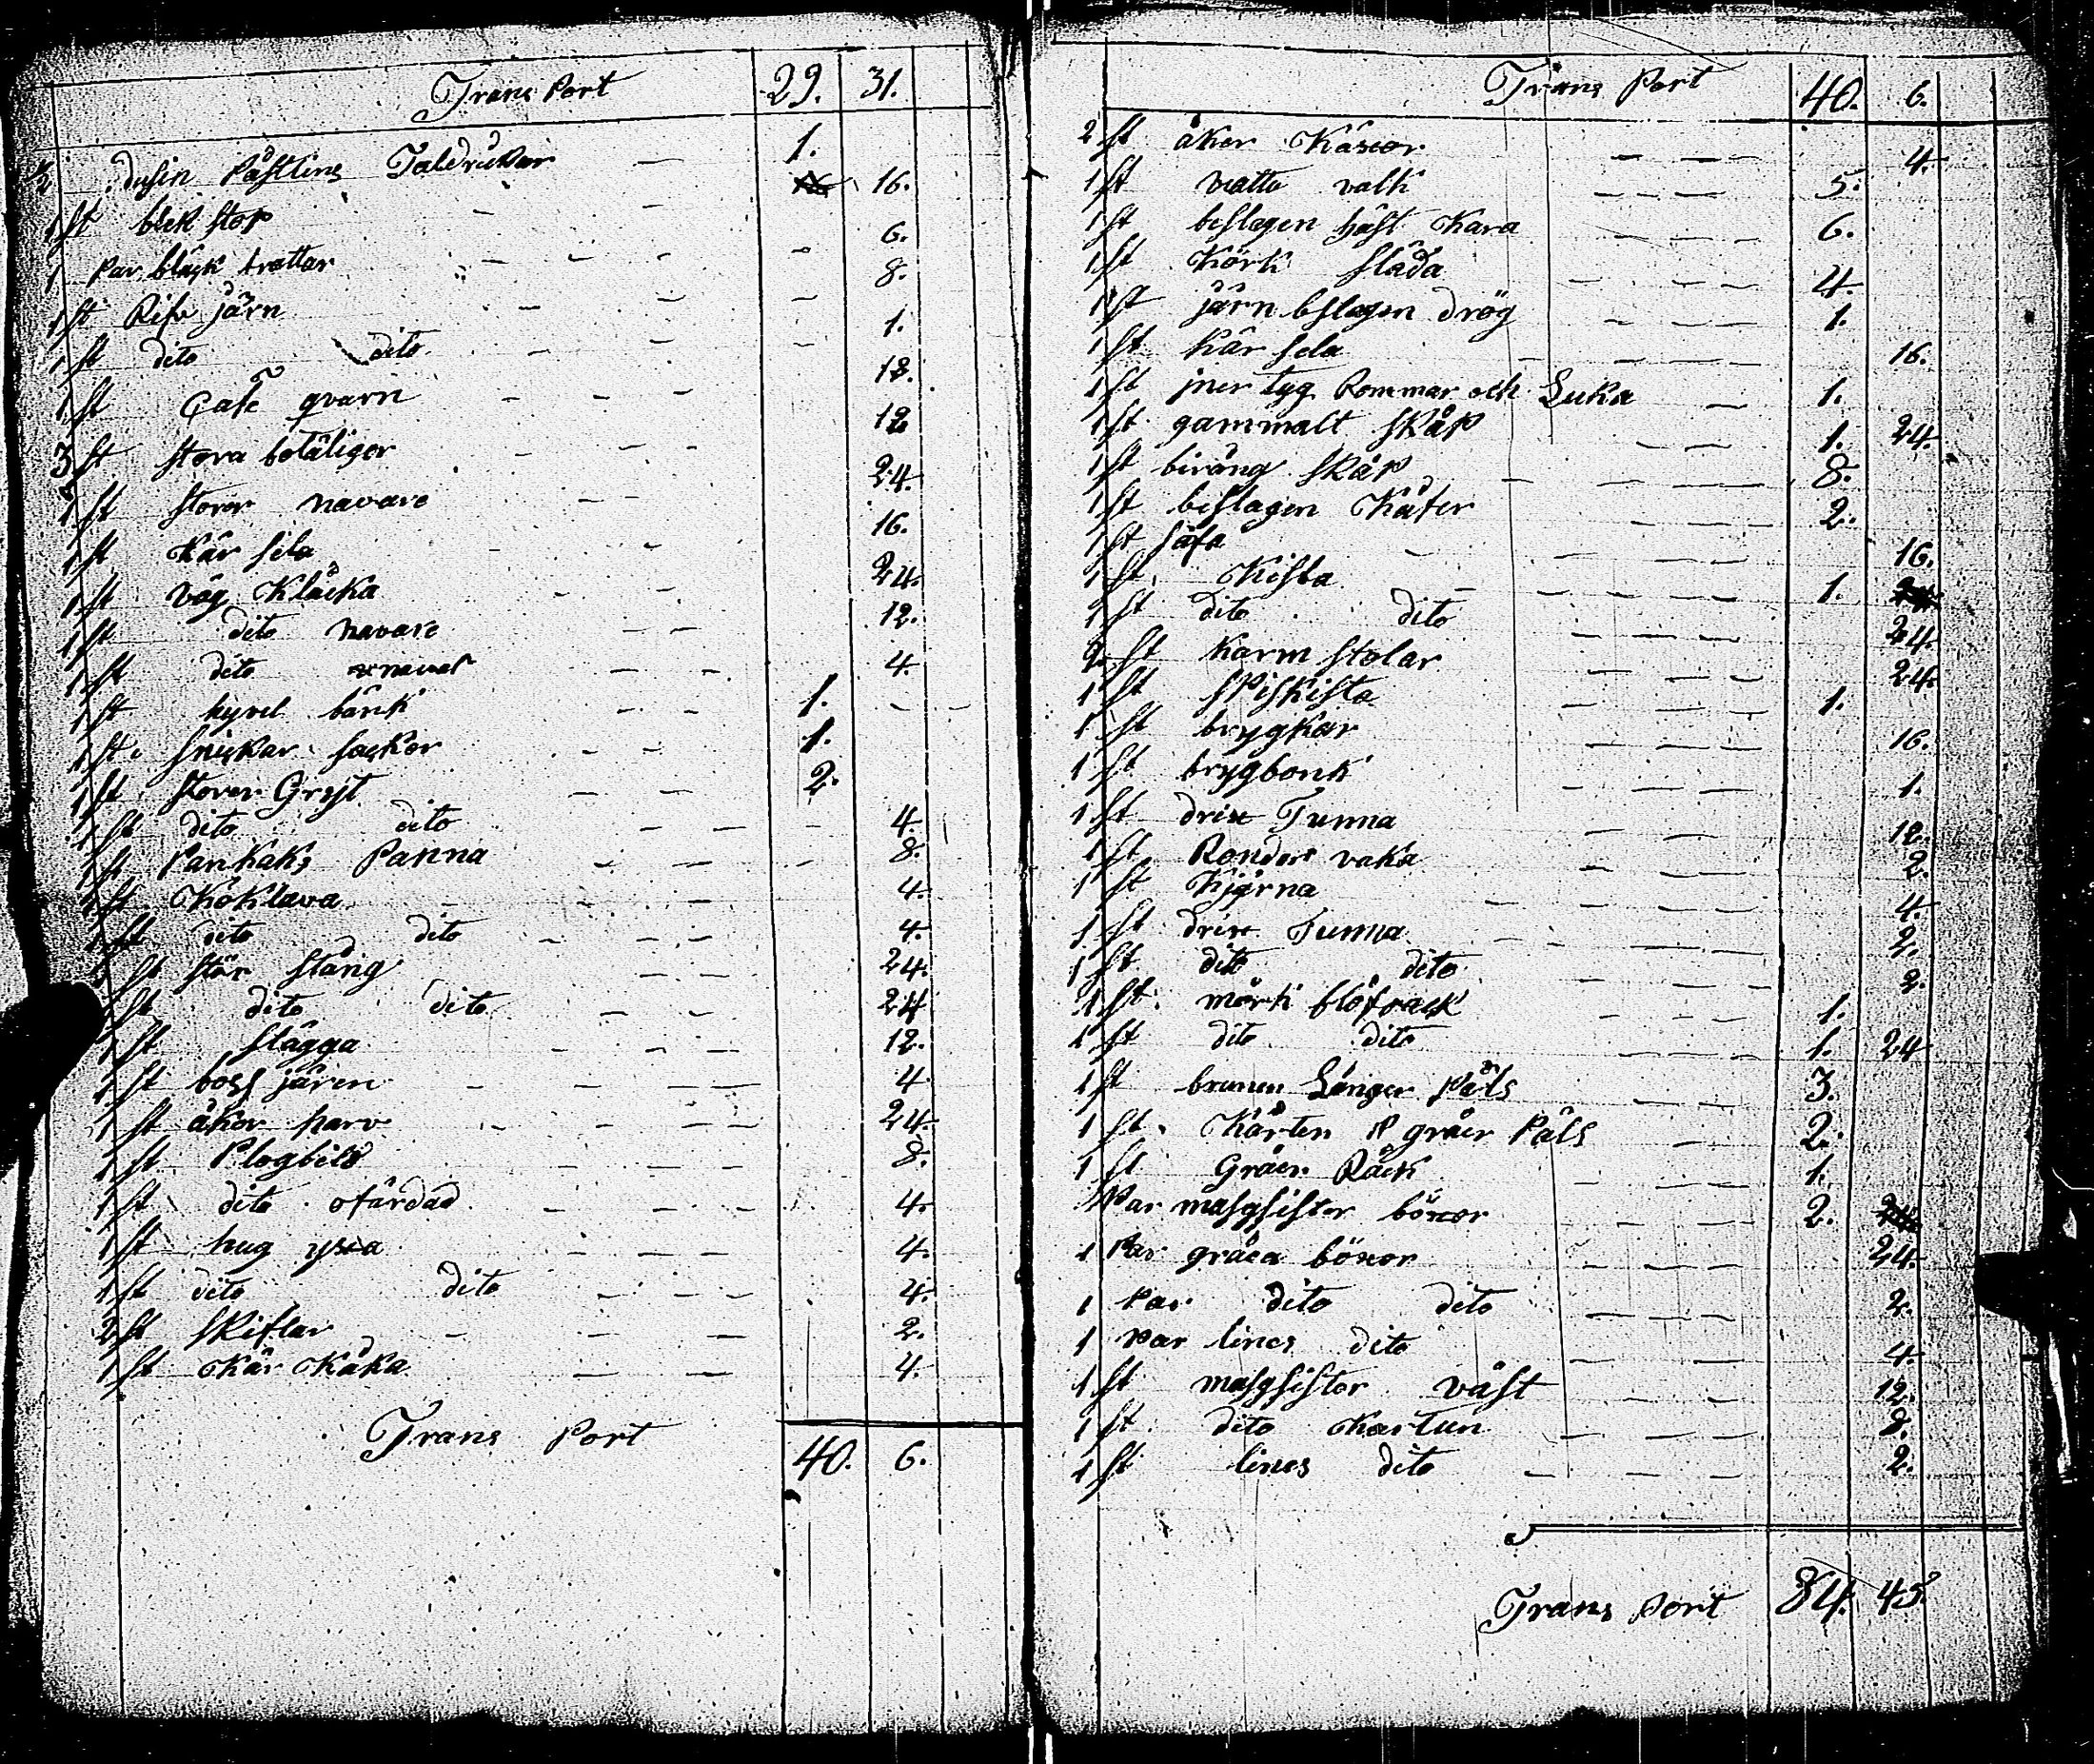 Trans Port 29. 31.
½ dusin Påstlins Taldrickar — 1.
1 st blek stop 16.
1 Par bläck trattar 6.
1 st Rife järn 8.
1 st dito dito 1.
1 st Cafe qvarn 12.
3 st stora botäliger 12
1 st storer navare 24.
1 st Kär sela 16.
1 st våg Kläcka 24.
1 st dito navare 12.
1 st dito navar 4.
1 st hyvel bänk 1.
1 st snickar sacker 1.
1 st storer Gryt 2.
1 st dito dito 4.
1 st Pankaks Panna 8.
1 st Kåklava 4.
1 st dito dito 4.
1 st stör stång 24.
1 st dito dito 24
1 st slägga 12.
1 st boss jären 4
1 st åker harv 24.
1 st Plogbild 8.
1 st dito ofärdad 4.
1 st hug yxa 4.
1 st dito dito 4.
2 st skiflar 2.
1 st Kär Kåka 4.
Trans Port 40. 6.
Trans Port 40. 6.
2 st åker Käxor 4.
1 st vatte valk 5.
1 st beslagen häst Kara 6.
1 st Körk släda 4.
1 st järn beslagen drög 1.
1 st Kär sela 16.
1 st jner tyg Rommar och Luka 1.
1 st gammalt skåp 1. 24.
1 st biräng skåp 8.
1 st beslagen Käfer 2.
1 st säfa 16.
1 st Kista 1.
1 st dito dito 24.
2 st Karm stolar 24.
1 st spiskista 1.
1 st brygkar 16.
1 st brygbonk 1.
1 st drix Tunna 12.
1 st Ronder vaka 2.
1 st Kjärna 4.
1 st drix Tunna 2.
1 st dito dito 2.
1 st mörk blåfrack 1.
1 st dito dito 1. 24
1 st brunen Länger Päls 3.
1 st Kårten gråer Päls 2.
1 st Gråer Råck 1.
1 Par masgsister böxor 2.
1 Par gråa böxor 24.
1 Par dito dito 2.
1 Par lines dito 4.
1 st masgsister väst 12.
1 st dito Kartun 8.
1 st lines dito 2.
Trans Port 84. 45.